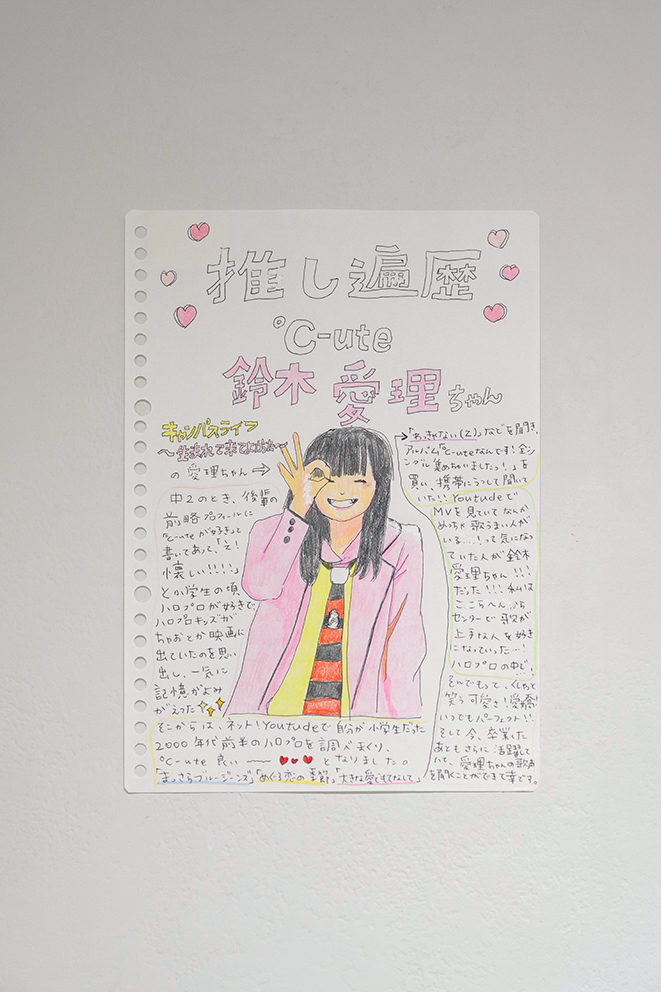 推し遍歴
℃-ute
鈴木愛理ちゃん
キャンパスライフ
～生まれて来てよかった～
の愛理ちゃん⇒
中2のとき、後輩の
前略プロフィールに
℃-uteが好きって
書いてあって、「え!
懐しい!!!!」
と小学生の頃
ハロプロが好きで、
ハロプロキッズが
ちゃおとか映画に
出ていたのを思い
出し、一気に
記憶がよみ
がえった
そこからは、ネット!Youtudeで自分が小学生だった
2000年代前半のハロプロを調べまくり、
℃-ute良い——となりました。
「まっさらブルージーンズ」「めぐる恋の季節」「大きな愛でもてなして」
→「わっきゃない(Z)」などを聞き、
アルバム「℃-uteなんです!全シ
ングル集めちゃいましたっ!」を
買い、携帯にうつして聞いて
いた!!Youtudeで
MVを見ていてなんか
めっちゃ歌うまい人が
いる...!って気になっ
ていた人が鈴木
愛理ちゃん!!!
だった!!!私は
ここらへんから
センターで歌が
上手な人を好き
になっていった...!
ハロプロの中で!
そんでもって、くしゃっと
笑う可愛さ!愛嬌!
いつでもパーフェクト!!
そして今、卒業した
あともさらに活躍し
ていて、愛理ちゃんの歌声
を聞くことができて幸です。